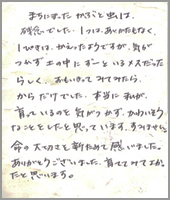 まちにまった かぶと虫は、
残念でした。1つは、あとかたもなく、
1ぴきは、かえったようですが、気が
つかず 土の中に ずーといるメスだった
らしく、おもいきって みてみたら、
からだけでした。本当に まれが、
育っているのを 気がつかず、かわいそう
なことをしたと思っています。すみません。
命の大切さを 新ためて 感じました。
ありがとうございました。育ててみてよかっ
たと思います。